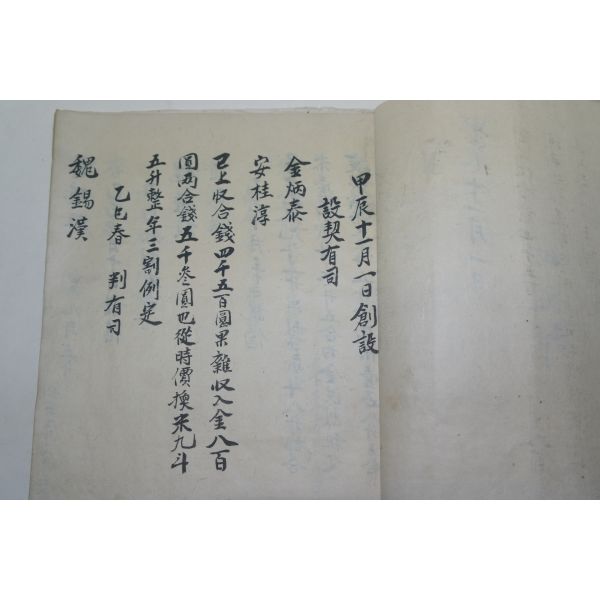 甲辰十一月一日創設
設契有司
金炳泰
安桂淳
已上収合錢四千五百圓果雜収入金八百
圓両合錢五千叄圓也從時價換米九斗
五升整年三割例定
乙巳春 判有司
魏錫漢